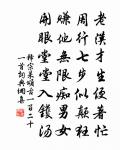 老漢才生便著忙
周行七步似顛狂
賺他無限痴男女
開眼堂堂入鑊湯
釋宗杲頌古一百二十
一首詞典網集